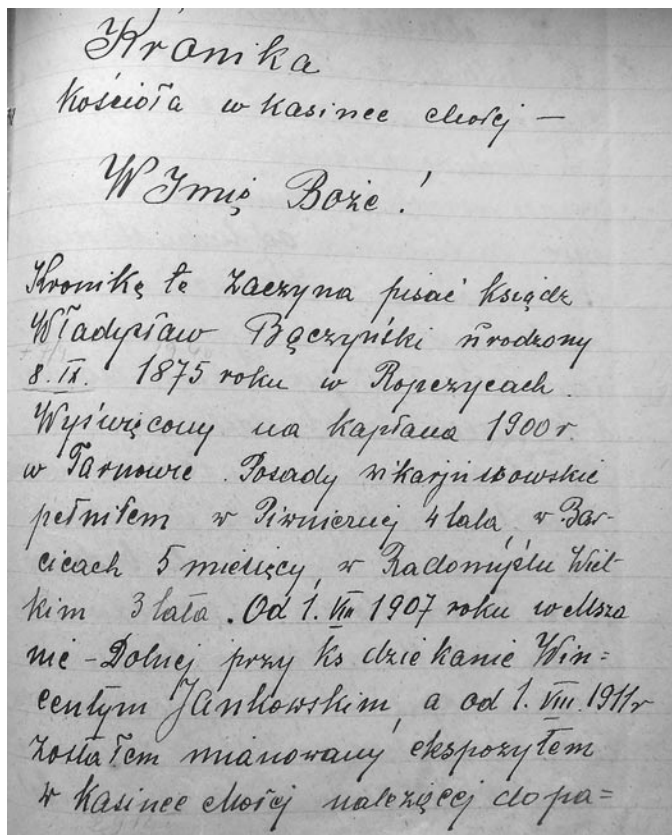 Kronika
Kościoła w Kasince Małej —
W Imię Boże!
Kronikę tę zaczyna pisać ksiądz
Władysław Bączyński urodzony
8. IX. 1875 roku w Ropczycach.
Wyświęcony na kapłana 1900 r.
w Tarnowie. Posady wikarjuszowskie
pełniłem w Piwnicznej 4 lata, w Bar-
cicach 5 miesięcy, w Radomyślu Wiel-
kim 3 lata. Od 1. VIII 1907 roku w Msza
nie-Dolnej przy ks dziekanie Win=
centym Jankowskim, a od 1. VIII. 1911 r
zostałem mianowany ekspozytem
w Kasince Małej należącej do pa=